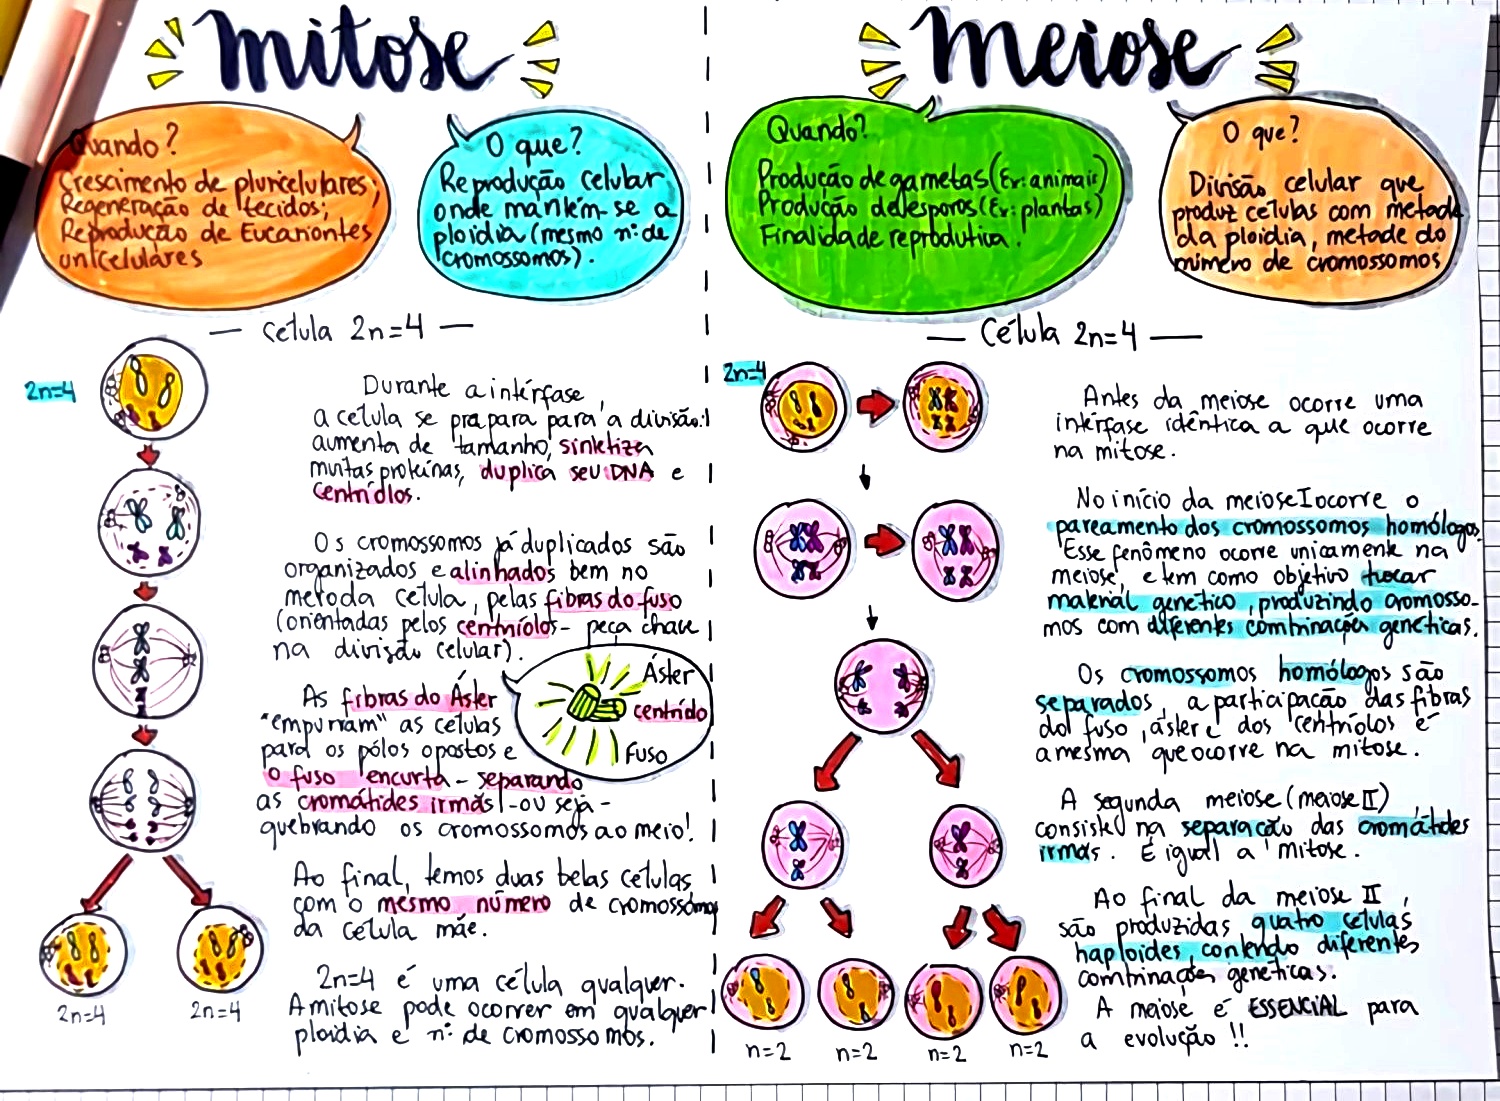 mitose
Quando?
Crescimento de pluricelulares;
Regeneração de tecidos;
Reprodução de Eucariontes
unicelulares
O que?
Reprodução celular
onde mantém-se a
ploidia (mesmo nº de
cromossomos).
— célula 2n=4 —
2n=4
Durante a intérfase,
a célula se prapara para a divisão:
aumenta de tamanho, sintetiza
muitas proteínas, duplica seu DNA e
centríolos.
Os cromossomos já duplicados são
organizados e alinhados bem no
meio da célula, pelas fibras do fuso
(orientadas pelos centríolos - peça chave
na divisão celular).
Áster
centríolo
Fuso
As fibras do Áster
"empurram" as células
para os pólos opostos e
o fuso encurta - separando
as cromátides irmãs - ou seja -
quebrando os cromossomos ao meio!
Ao final, temos duas belas células,
com o mesmo número de cromossomos
da célula mãe.
2n=4 é uma célula qualquer.
A mitose pode ocorrer em qualquer
ploidia e nº de cromossomos.
2n=4
2n=4
meiose
Quando?
Produção de gametas (Ex: animais)
Produção de esporos (Ex: plantas)
Finalidade reprodutiva.
O que?
Divisão celular que
produz células com metade
da ploidia, metade do
número de cromossomos
— Célula 2n=4 —
2n=4
Antes da meiose ocorre uma
intérfase idêntica a que ocorre
na mitose.
No início da meiose I ocorre o
pareamento dos cromossomos homólogos.
Esse fenômeno ocorre unicamente na
meiose, e tem como objetivo trocar
material genético, produzindo cromosso-
mos com diferentes combinações genéticas.
Os cromossomos homólogos são
separados, a participação das fibras
do fuso, áster e dos centríolos é
a mesma que ocorre na mitose.
A segunda meiose (meiose II),
consiste na separação das cromátides
irmãs. É igual a mitose.
Ao final da meiose II,
são produzidas quatro células
haploides contendo diferentes
combinações genéticas.
A meiose é ESSENCIAL para
a evolução !!
n=2
n=2
n=2
n=2